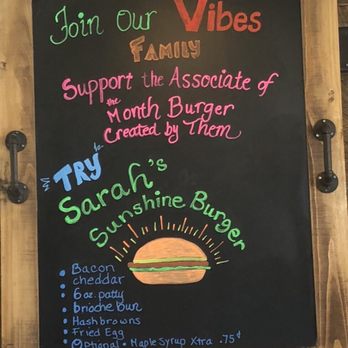 Join Our Vibes
Family
Support the Associate of
the Month Burger
Created by Them
TRY
Sarah's
Sunshine Burger
Bacon
cheddar
6 oz. patty
brioche Bun
Hashbrowns
Fried Egg
Optional • Maple Syrup Xtra .75¢